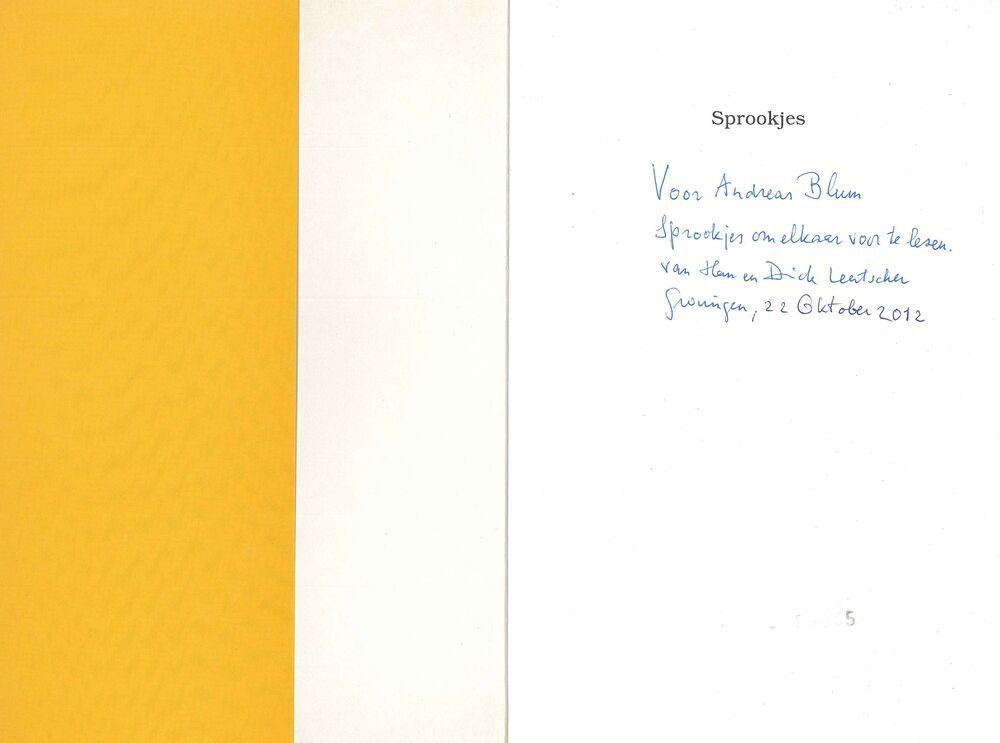 Sprookjes
Voor Andreas Blum
Sprookjes om elkaar voor te lesen.
van Han en Dick Leutscher
Groningen, 22 Oktober 2012
5